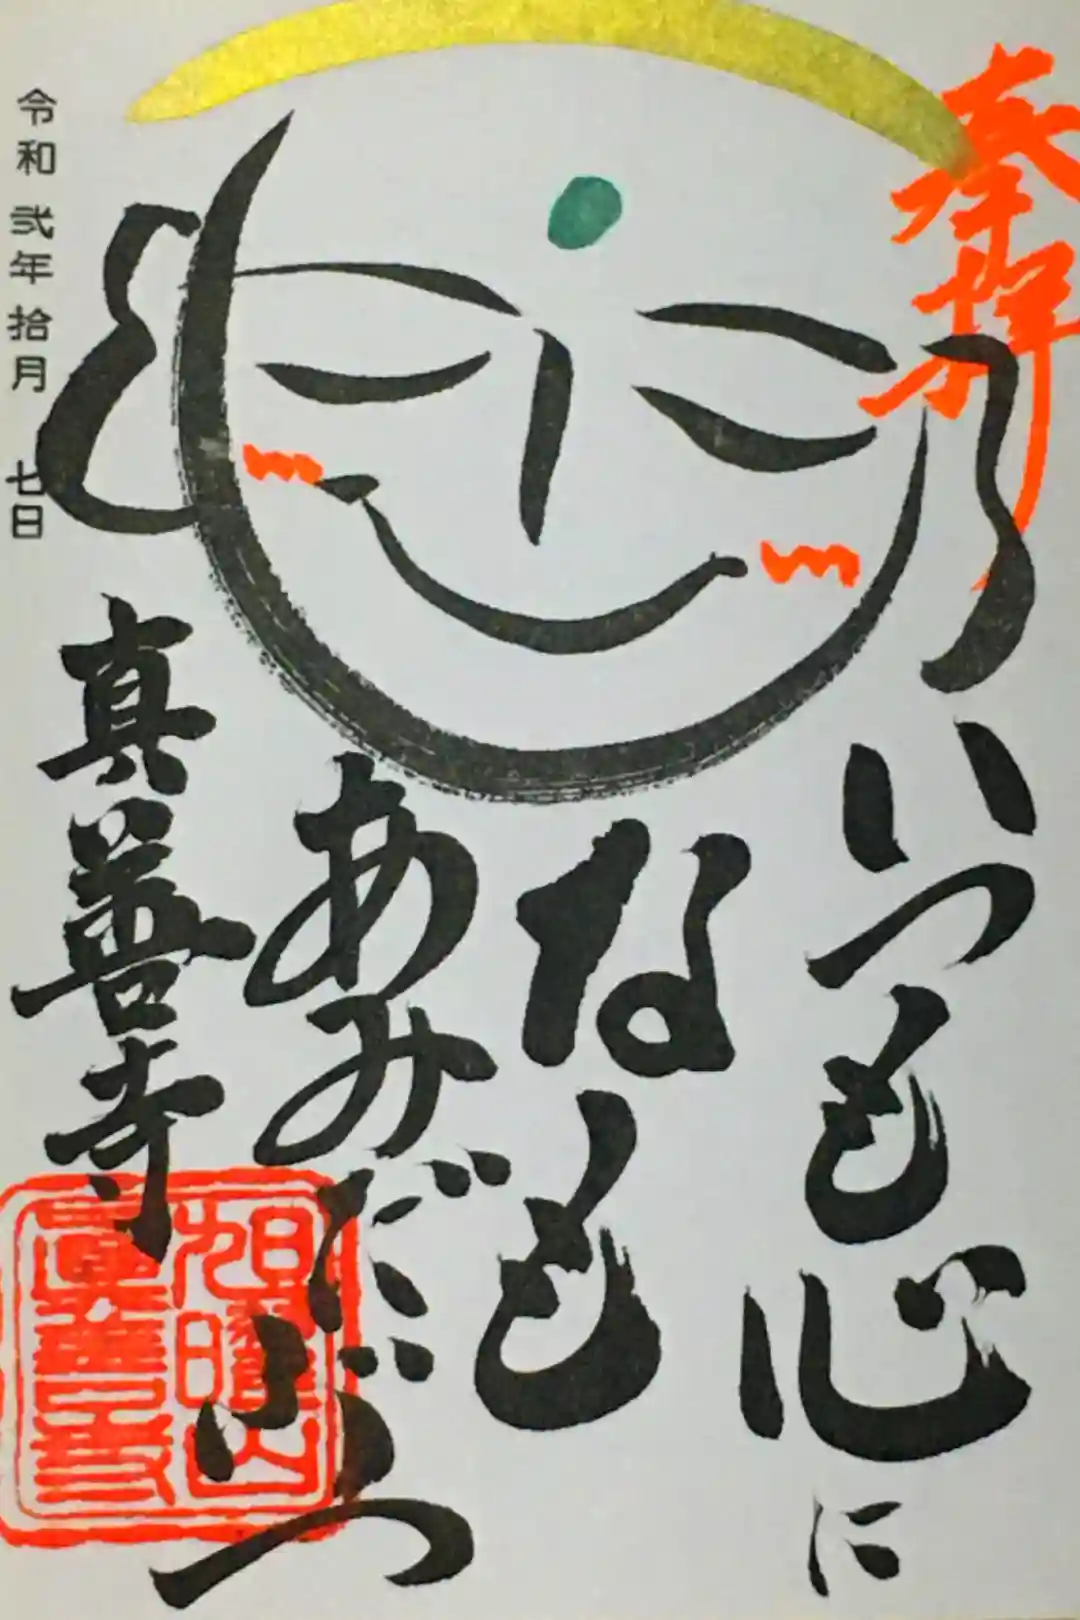 奉拝
いつも心に
なも
あみだぶつ
真善寺
令和弐年拾月七日
旭曜山
真善寺